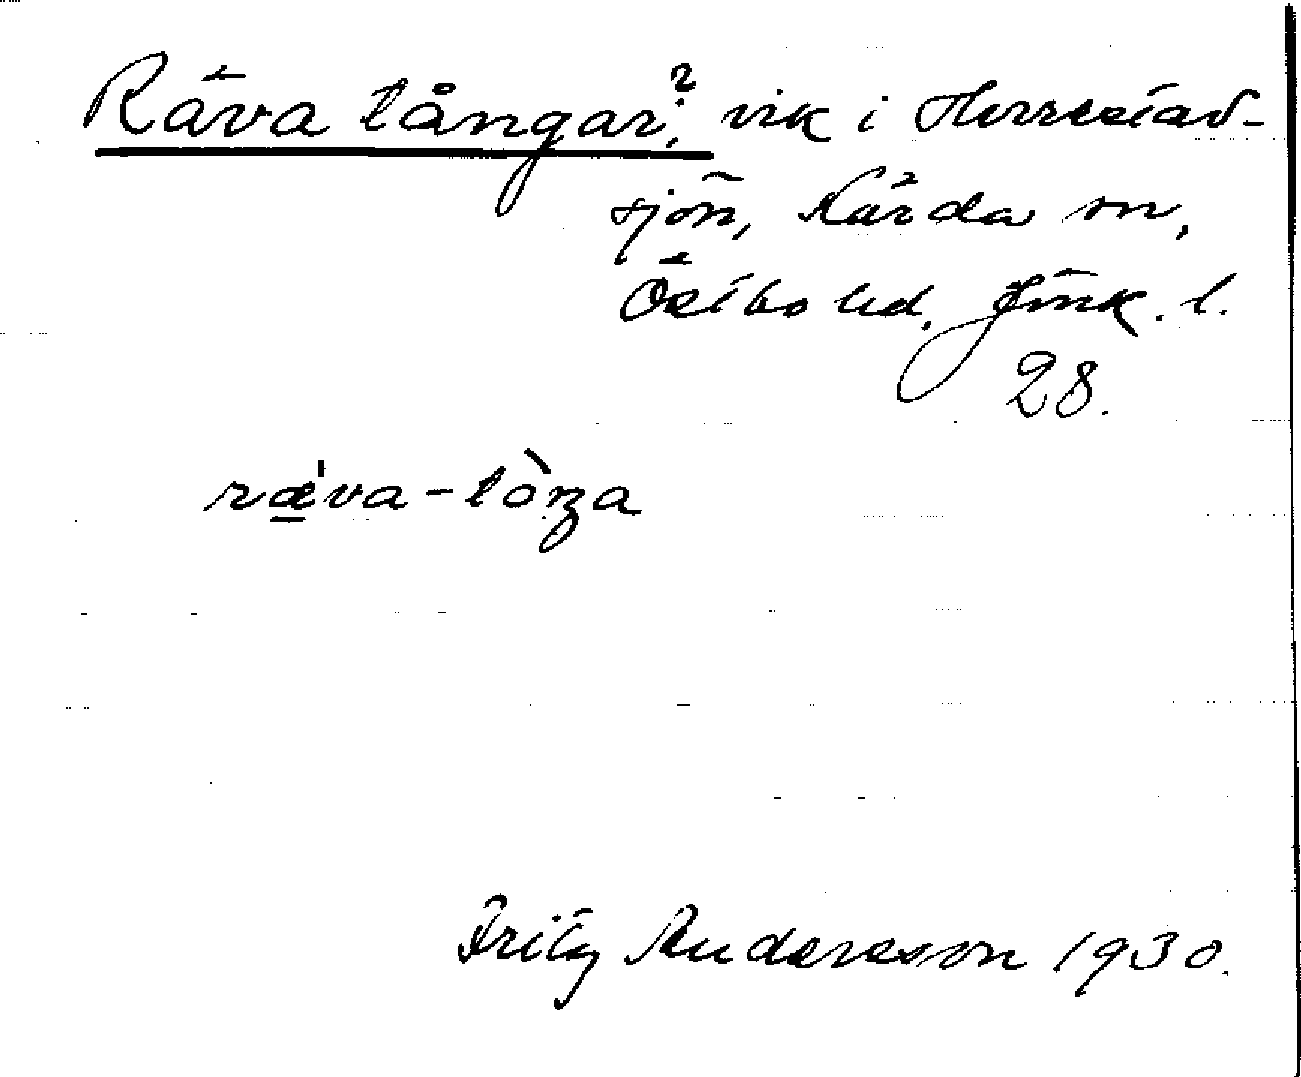 Räva tångar?; vik i Herrestad-
sjön, Kärda sn,
Östbo hd, Jönk. l.
28.
rǽ̱va-tòŋa
Fritz Andersson 1930.